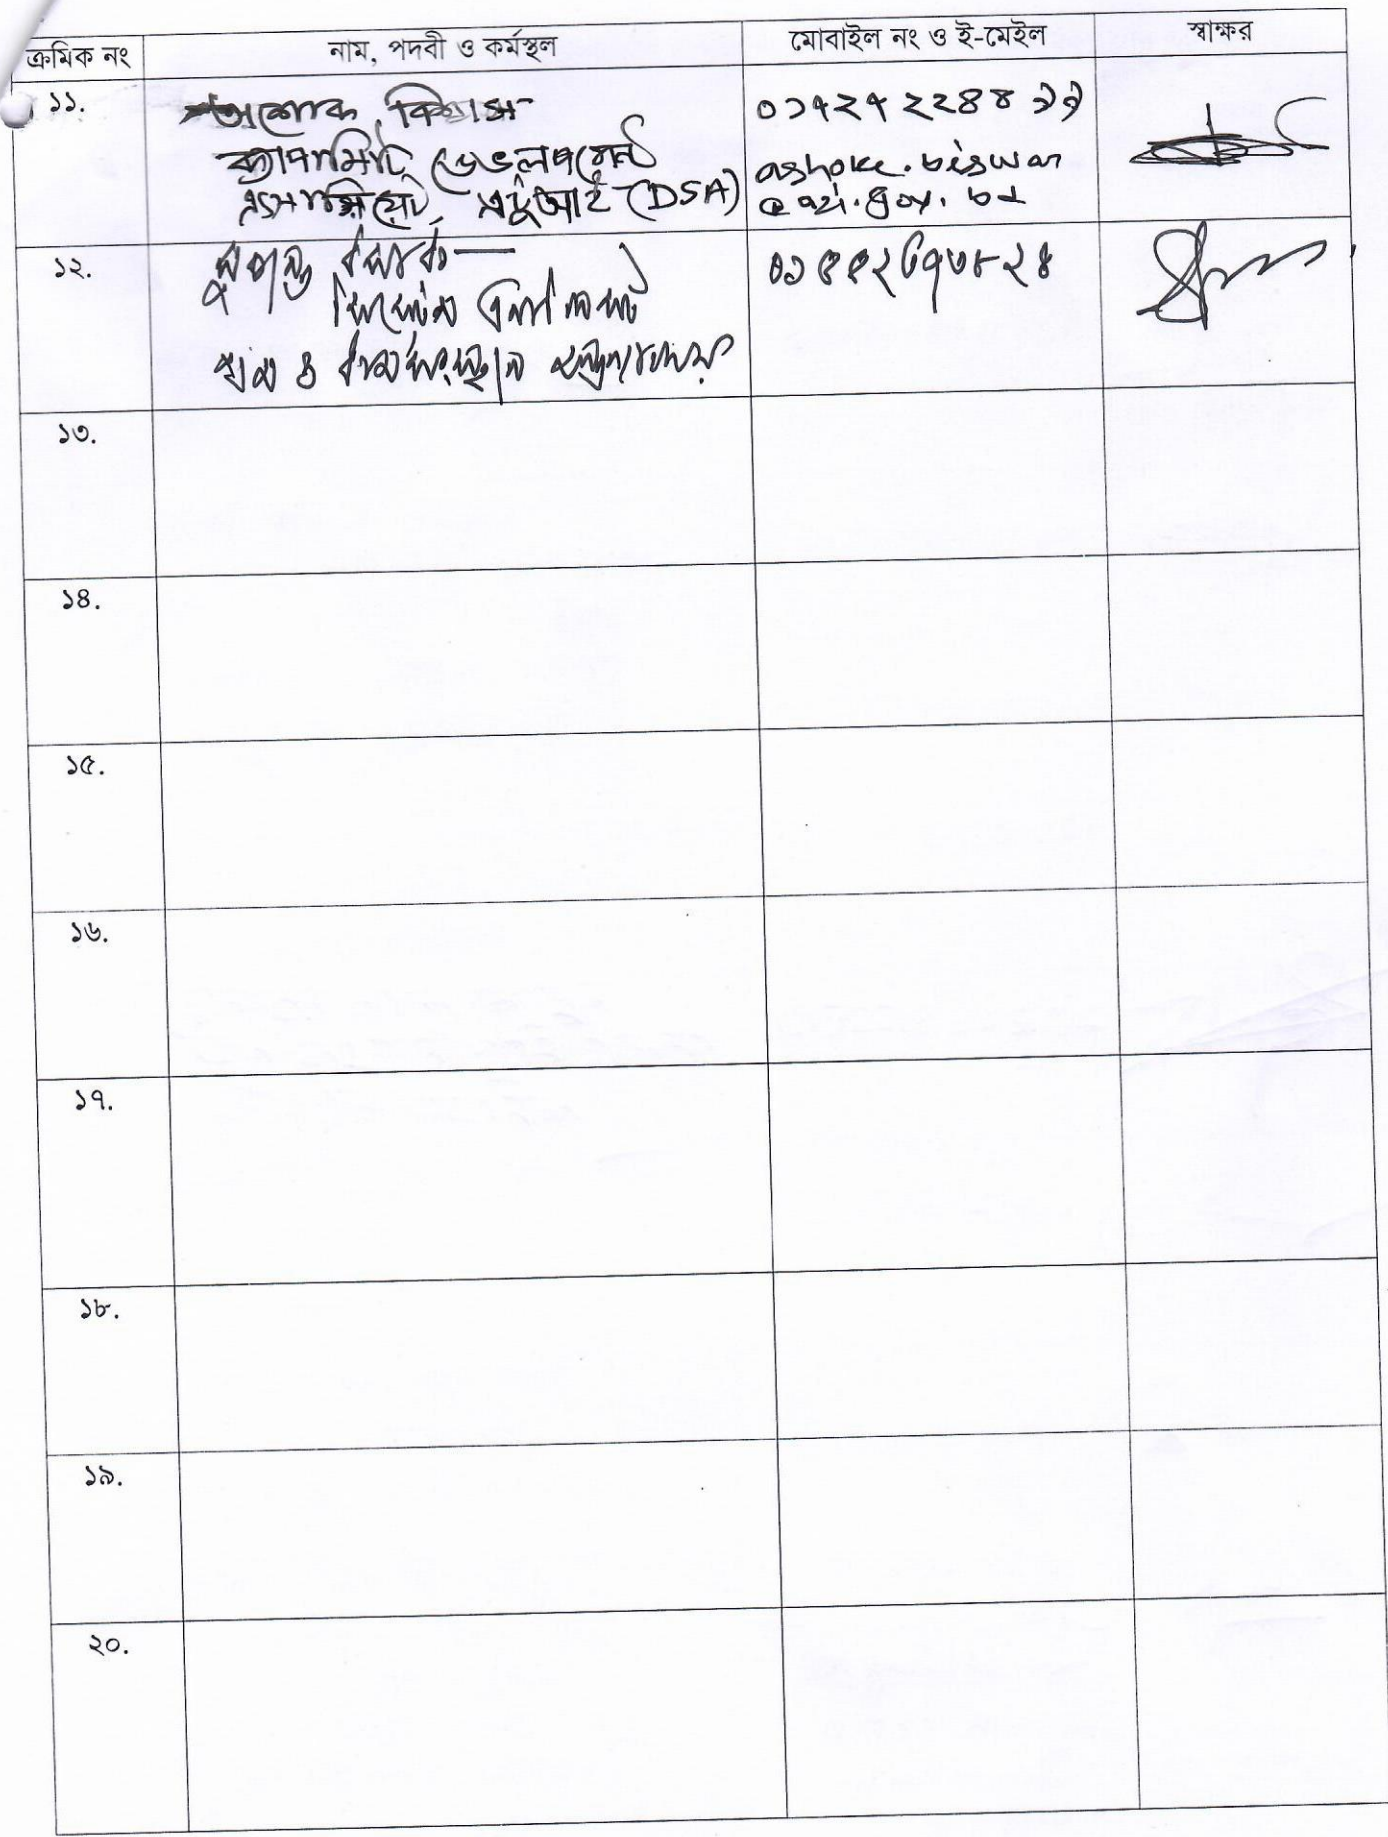 ক্রমিক নং নাম, পদবী ও কর্মস্থল মোবাইল নং ও ই-মেইল স্বাক্ষর
১১. অশোক বিশ্বাস
ক্যাপাসিটি ডেভেলপমেন্ট
এসোসিয়েট, এটুআই (DSA)
০১৭২৭২২৪৪
ashoke.biswas
@a2i.gov.bd
১২. সুশান্ত
সিস্টেম এনালিস্ট
শ্রম ও কর্মসংস্থান মন্ত্রণালয়
১৩.
১৪.
১৫.
১৬.
১৭.
১৮.
১৯.
২০.